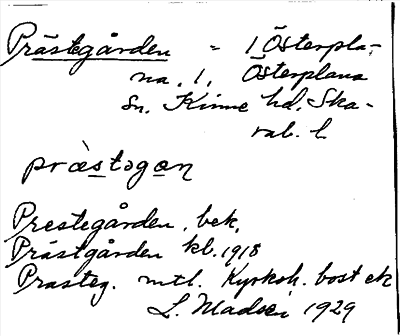 Prästegården = 1 Österpla-
na, 1, Österplana
sn, Kinne hd, Ska-
rab. l.
præ̀stəgɑn
Prestegården, bek.
Prästgården kl. 1918
Prästeg. mtl. Kyrkoh. bost ek
L. Madsén 1929